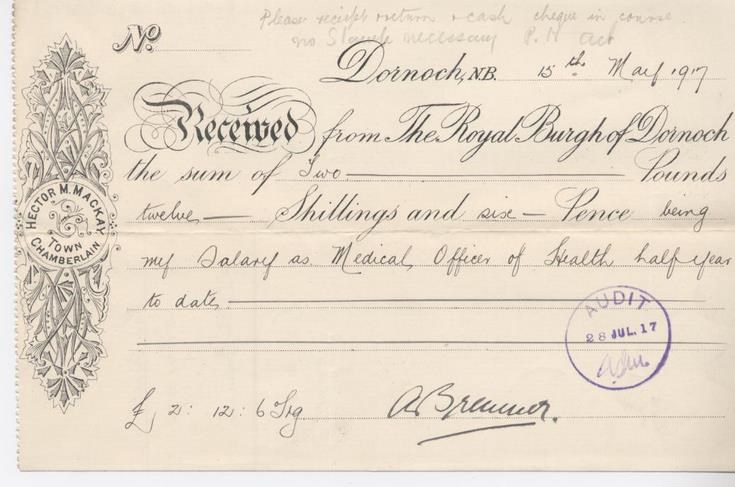 Please receipt & return & cash cheque in course
no Stamp necessary P. H Act
No.
Dornoch, N.B. 15th May 1917
Received from The Royal Burgh of Dornoch
the sum of Two Pounds
twelve Shillings and six Pence being
my Salary as Medical Officer of Health half year
to date
HECTOR M. MACKAY
TOWN
CHAMBERLAIN
AUDIT
28 JUL. 17
£ 2: 12: 6 Stg
A Bremner.